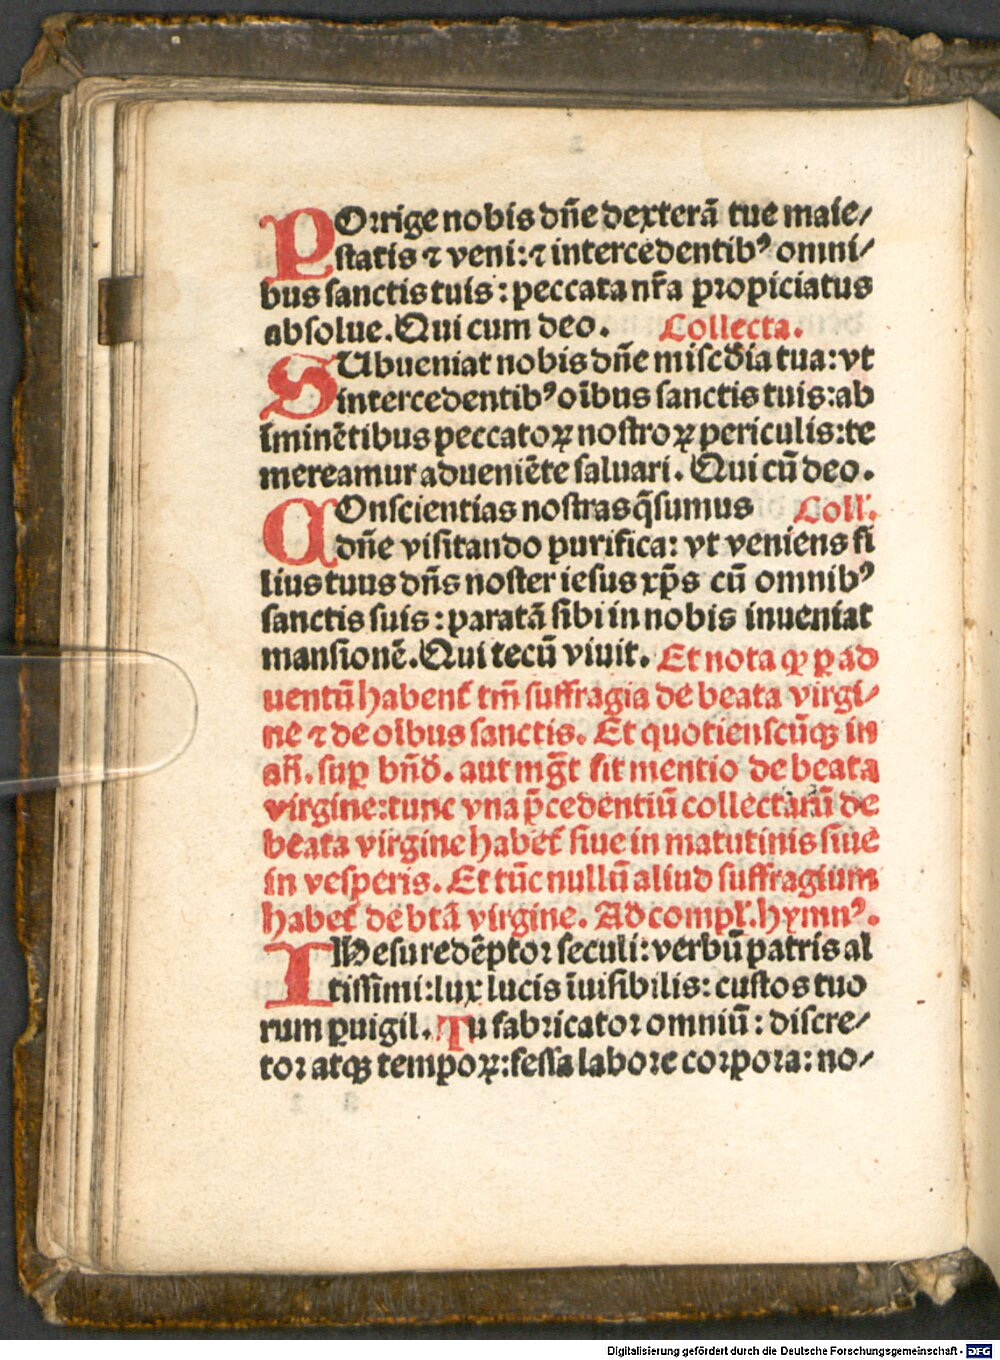 POrrige nobis dn̄e dexterā tue maie/
statis ⁊ veni:⁊ intercedentibꝰ omni/
bus sanctis tuis : peccata nr̄a propiciatus
absolue. Qui cum deo. Collecta.
SUbueniat nobis dn̄e misc̄dia tua: vt
intercedentibꝰ oībus sanctis tuis: ab
īminētibus peccatoꝝ nostroꝝ periculis: te
mereamur adueniēte saluari. Qui cū deo.
COnscientias nostras q̄sumus Coll'.
dn̄e visitando purifica: vt veniens fi
lius tuus dn̄s noster iesus xp̄s cū omnibꝰ
sanctis suis : paratā sibi in nobis inueniat
mansionē. Qui tecū viuit. Et nota ꝙ ꝑ ad
uentū habent᷑ tm̄ suffragia de beata virgi/
ne ⁊ de oībus sanctis. Et quotienscūqꝫ in
an̄. suꝑ bn̄d. aut mḡt fit mentio de beata
virgine: tunc vna p̄cedentiū collectarū de
beata virgine habet᷑ siue in matutinis siue
in vesperis. Et tūc nullū aliud suffragium
habet᷑ de btā virgine. Ad compl'. hymnꝰ.
IHesu redēptor seculi: verbū patris al
tissimi: lux lucis īuisibilis: custos tuo
rum ꝑuigil. Tu fabricator omniū : discre/
tor atqꝫ tempoꝝ: fessa labore corpora: no/
Digitalisierung gefördert durch die Deutsche Forschungsgemeinschaft - DFG